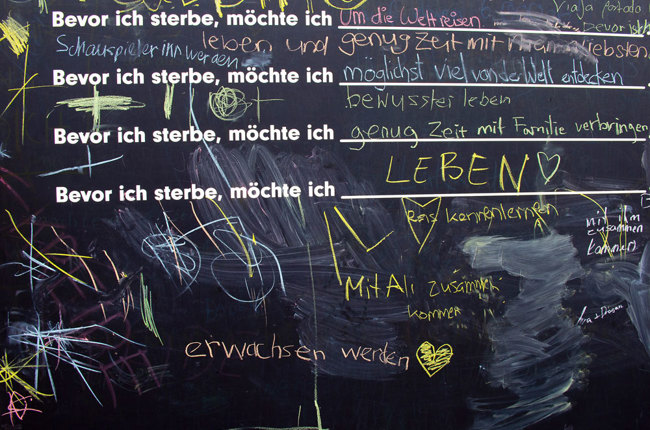 Viaja
Bevor ich sterbe, möchte ich Um die Welt reisen
Schauspielerinn werden leben und genug Zeit mit Liebsten
Bevor ich sterbe, möchte ich möglichst viel von der Welt entdecken
bewusster leben
Bevor ich sterbe, möchte ich genug Zeit mit Familie verbringen
Bevor ich sterbe, möchte ich LEBEN
kennenlernen
mit ihm
zusammen
kommen
Mit Ali zusammen
kommen
erwachsen werden